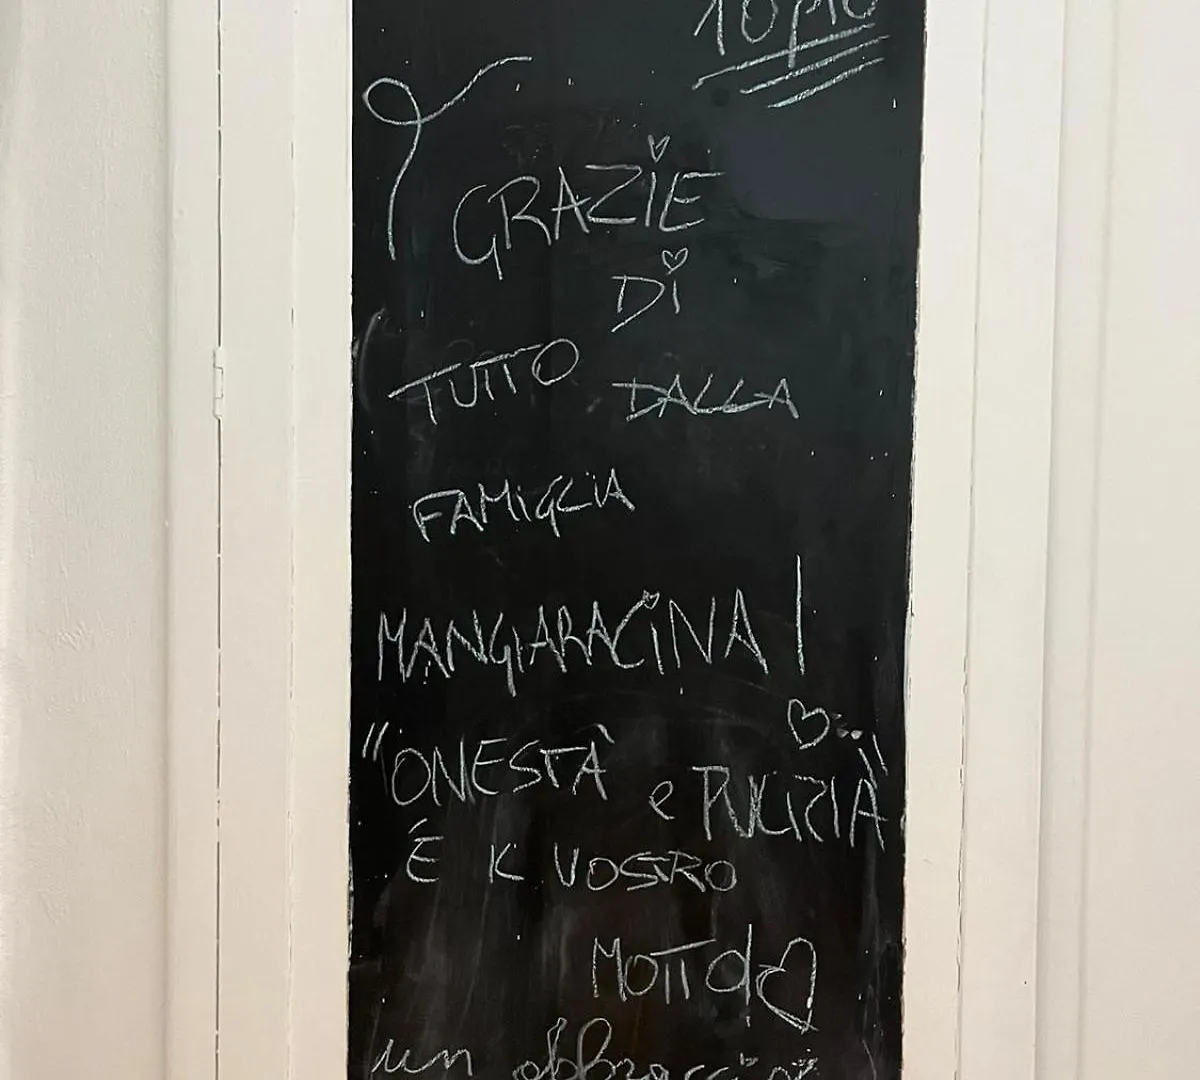 GRAZIE
Di
TUTTO DALLA
FAMiGLiA
MANGIARACiNA!
"ONESTÀ e PULIZIA"
È iL VOSTRO
MOTTO!
un